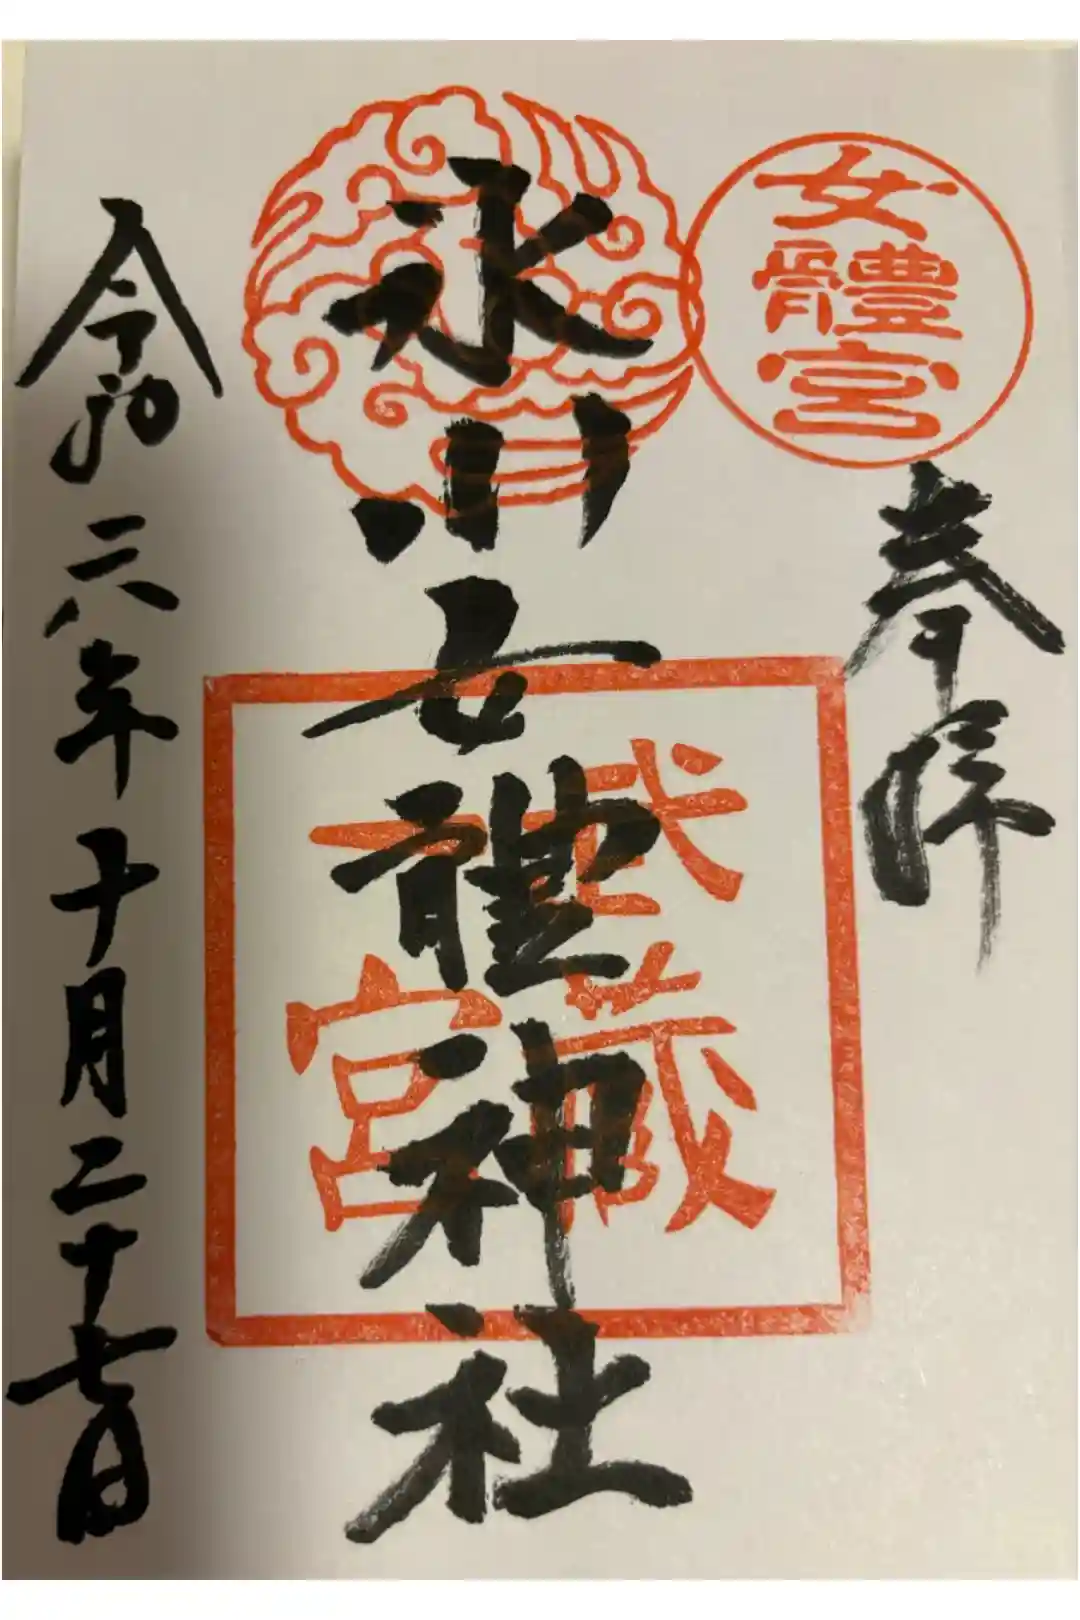 女體宮
奉拝
氷川女體神社
武蔵宮
令和六年十月二十七日